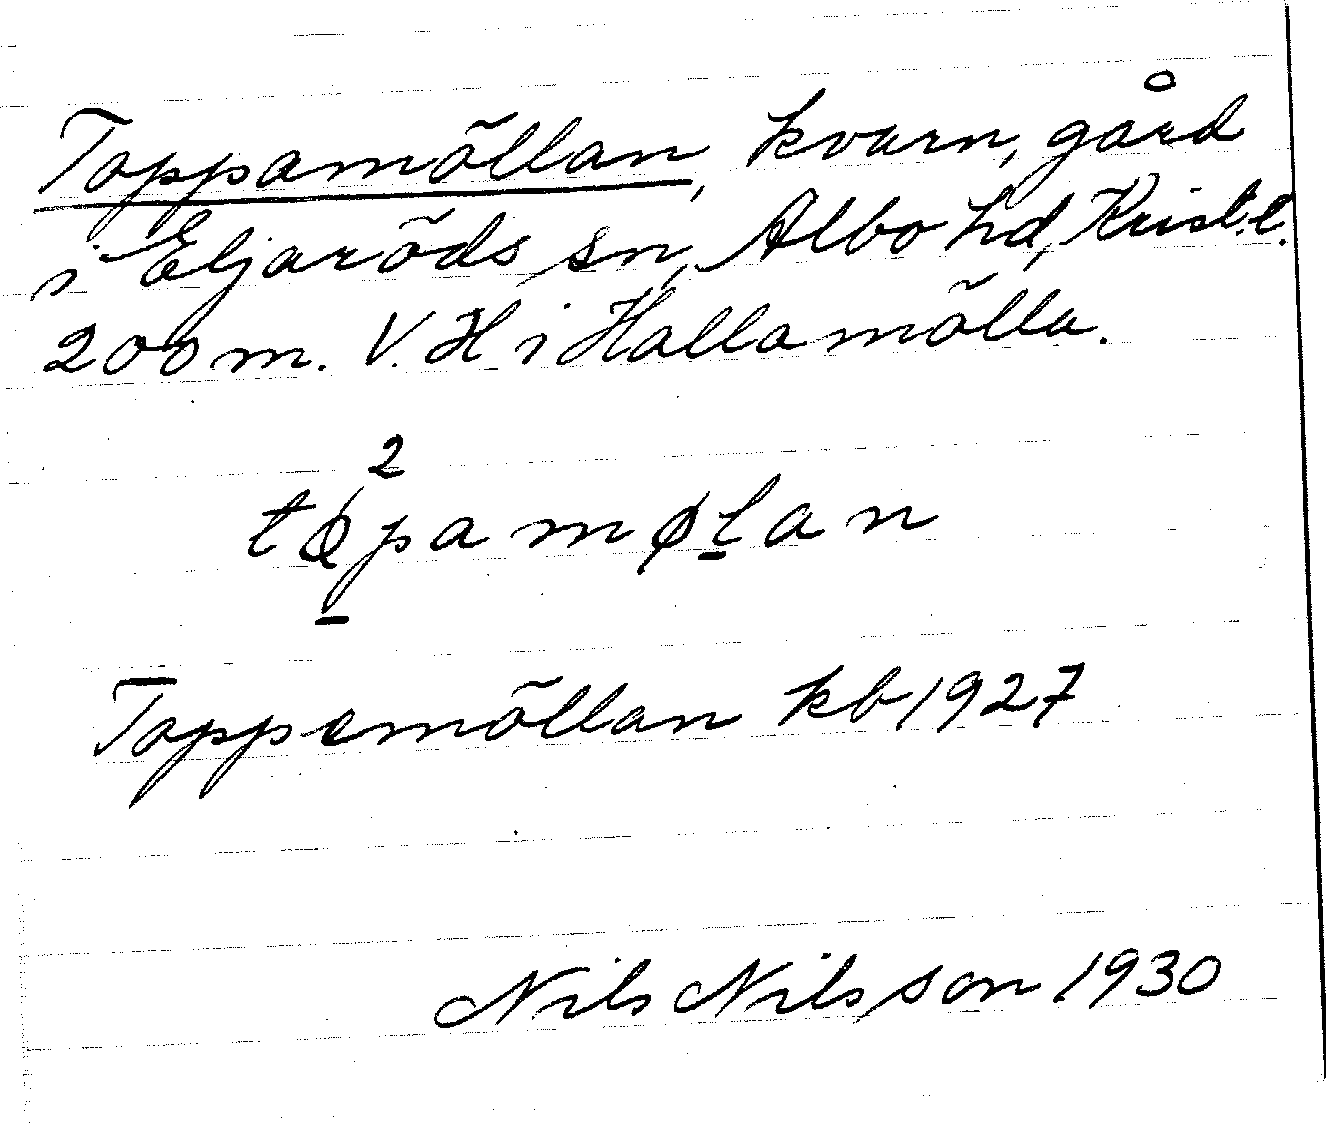 Toppamöllan, kvarn, gård
i Eljaröds sn, Albo hd, Krist. l.
200 m. V. H i Hallamölla.
2
tǫpamøl̠an
Toppemöllan kb 1927
Nils Nilsson 1930